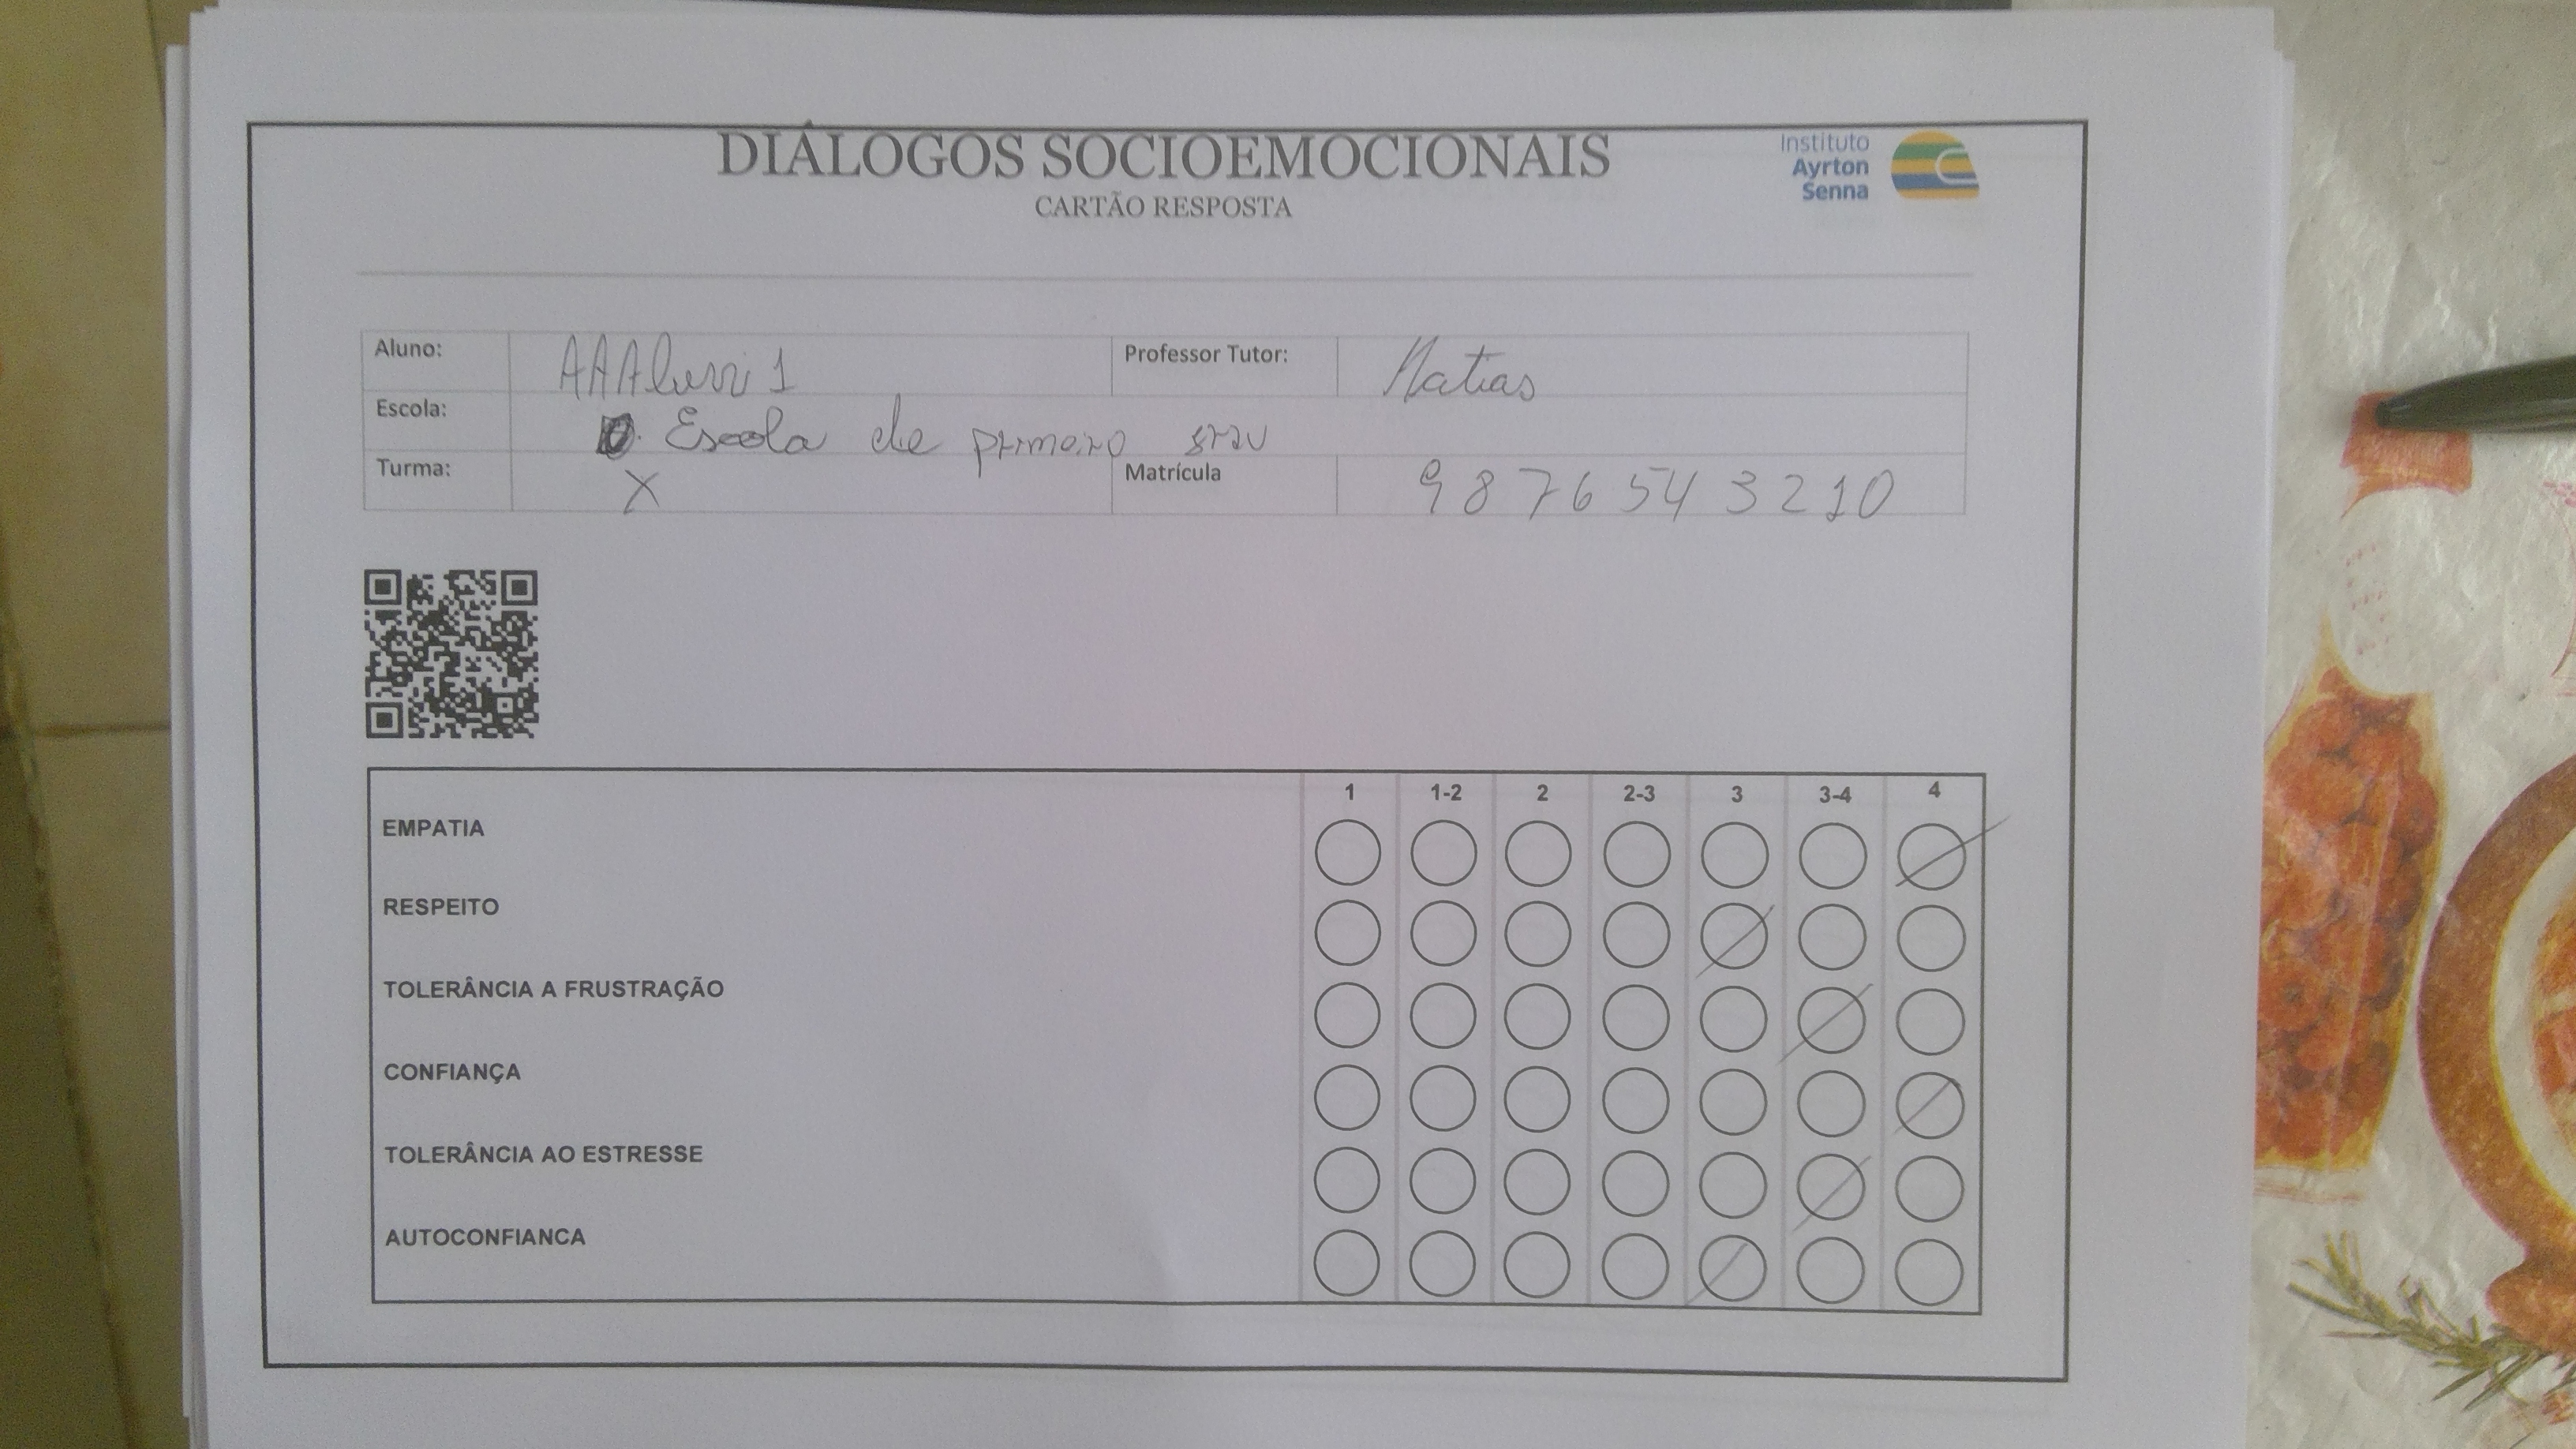 DIÁLOGOS SOCIOEMOCIONAIS
CARTÃO RESPOSTA
Instituto
Ayrton
Senna
Aluno: 1 Professor Tutor: Matias
Escola: Escola de primeiro grau
Turma: X Matrícula 9876543210
1 1-2 2 2-3 3 3-4 4
EMPATIA
RESPEITO
TOLERÂNCIA A FRUSTRAÇÃO
CONFIANÇA
TOLERÂNCIA AO ESTRESSE
AUTOCONFIANCA